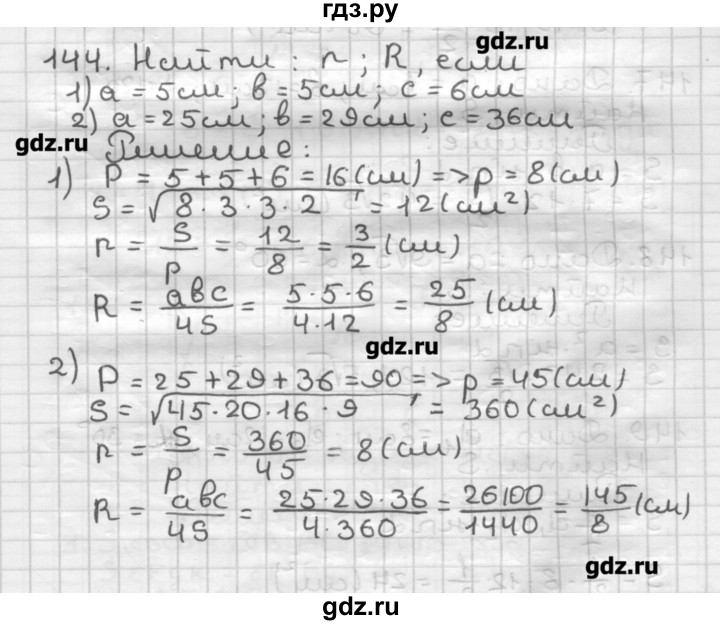 гдз.ру
144. Найти: r; R, если
gdz.ru
1) a = 5см; в = 5см; с = 6см
2) a = 25см; в = 29см; с = 36см
gdz.ru
Решение:
1) P = 5 + 5 + 6 = 16 (см) => p = 8 (см)
S = √8 · 3 · 3 · 2 = 12 (см²)
r = S/p = 12/8 = 3/2 (см)
R = aвс/4S = 5·5·6/4·12 = 25/8 (см)
gdz.ru
2) P = 25 + 29 + 36 = 90 => p = 45 (см)
S = √45 · 20 · 16 · 9 = 360 (см²)
r = S/p = 360/45 = 8 (см)
R = aвс/4S = 25·29·36/4·360 = 26100/1440 = 145/8 (см)
gdz.ru
gdz.ru